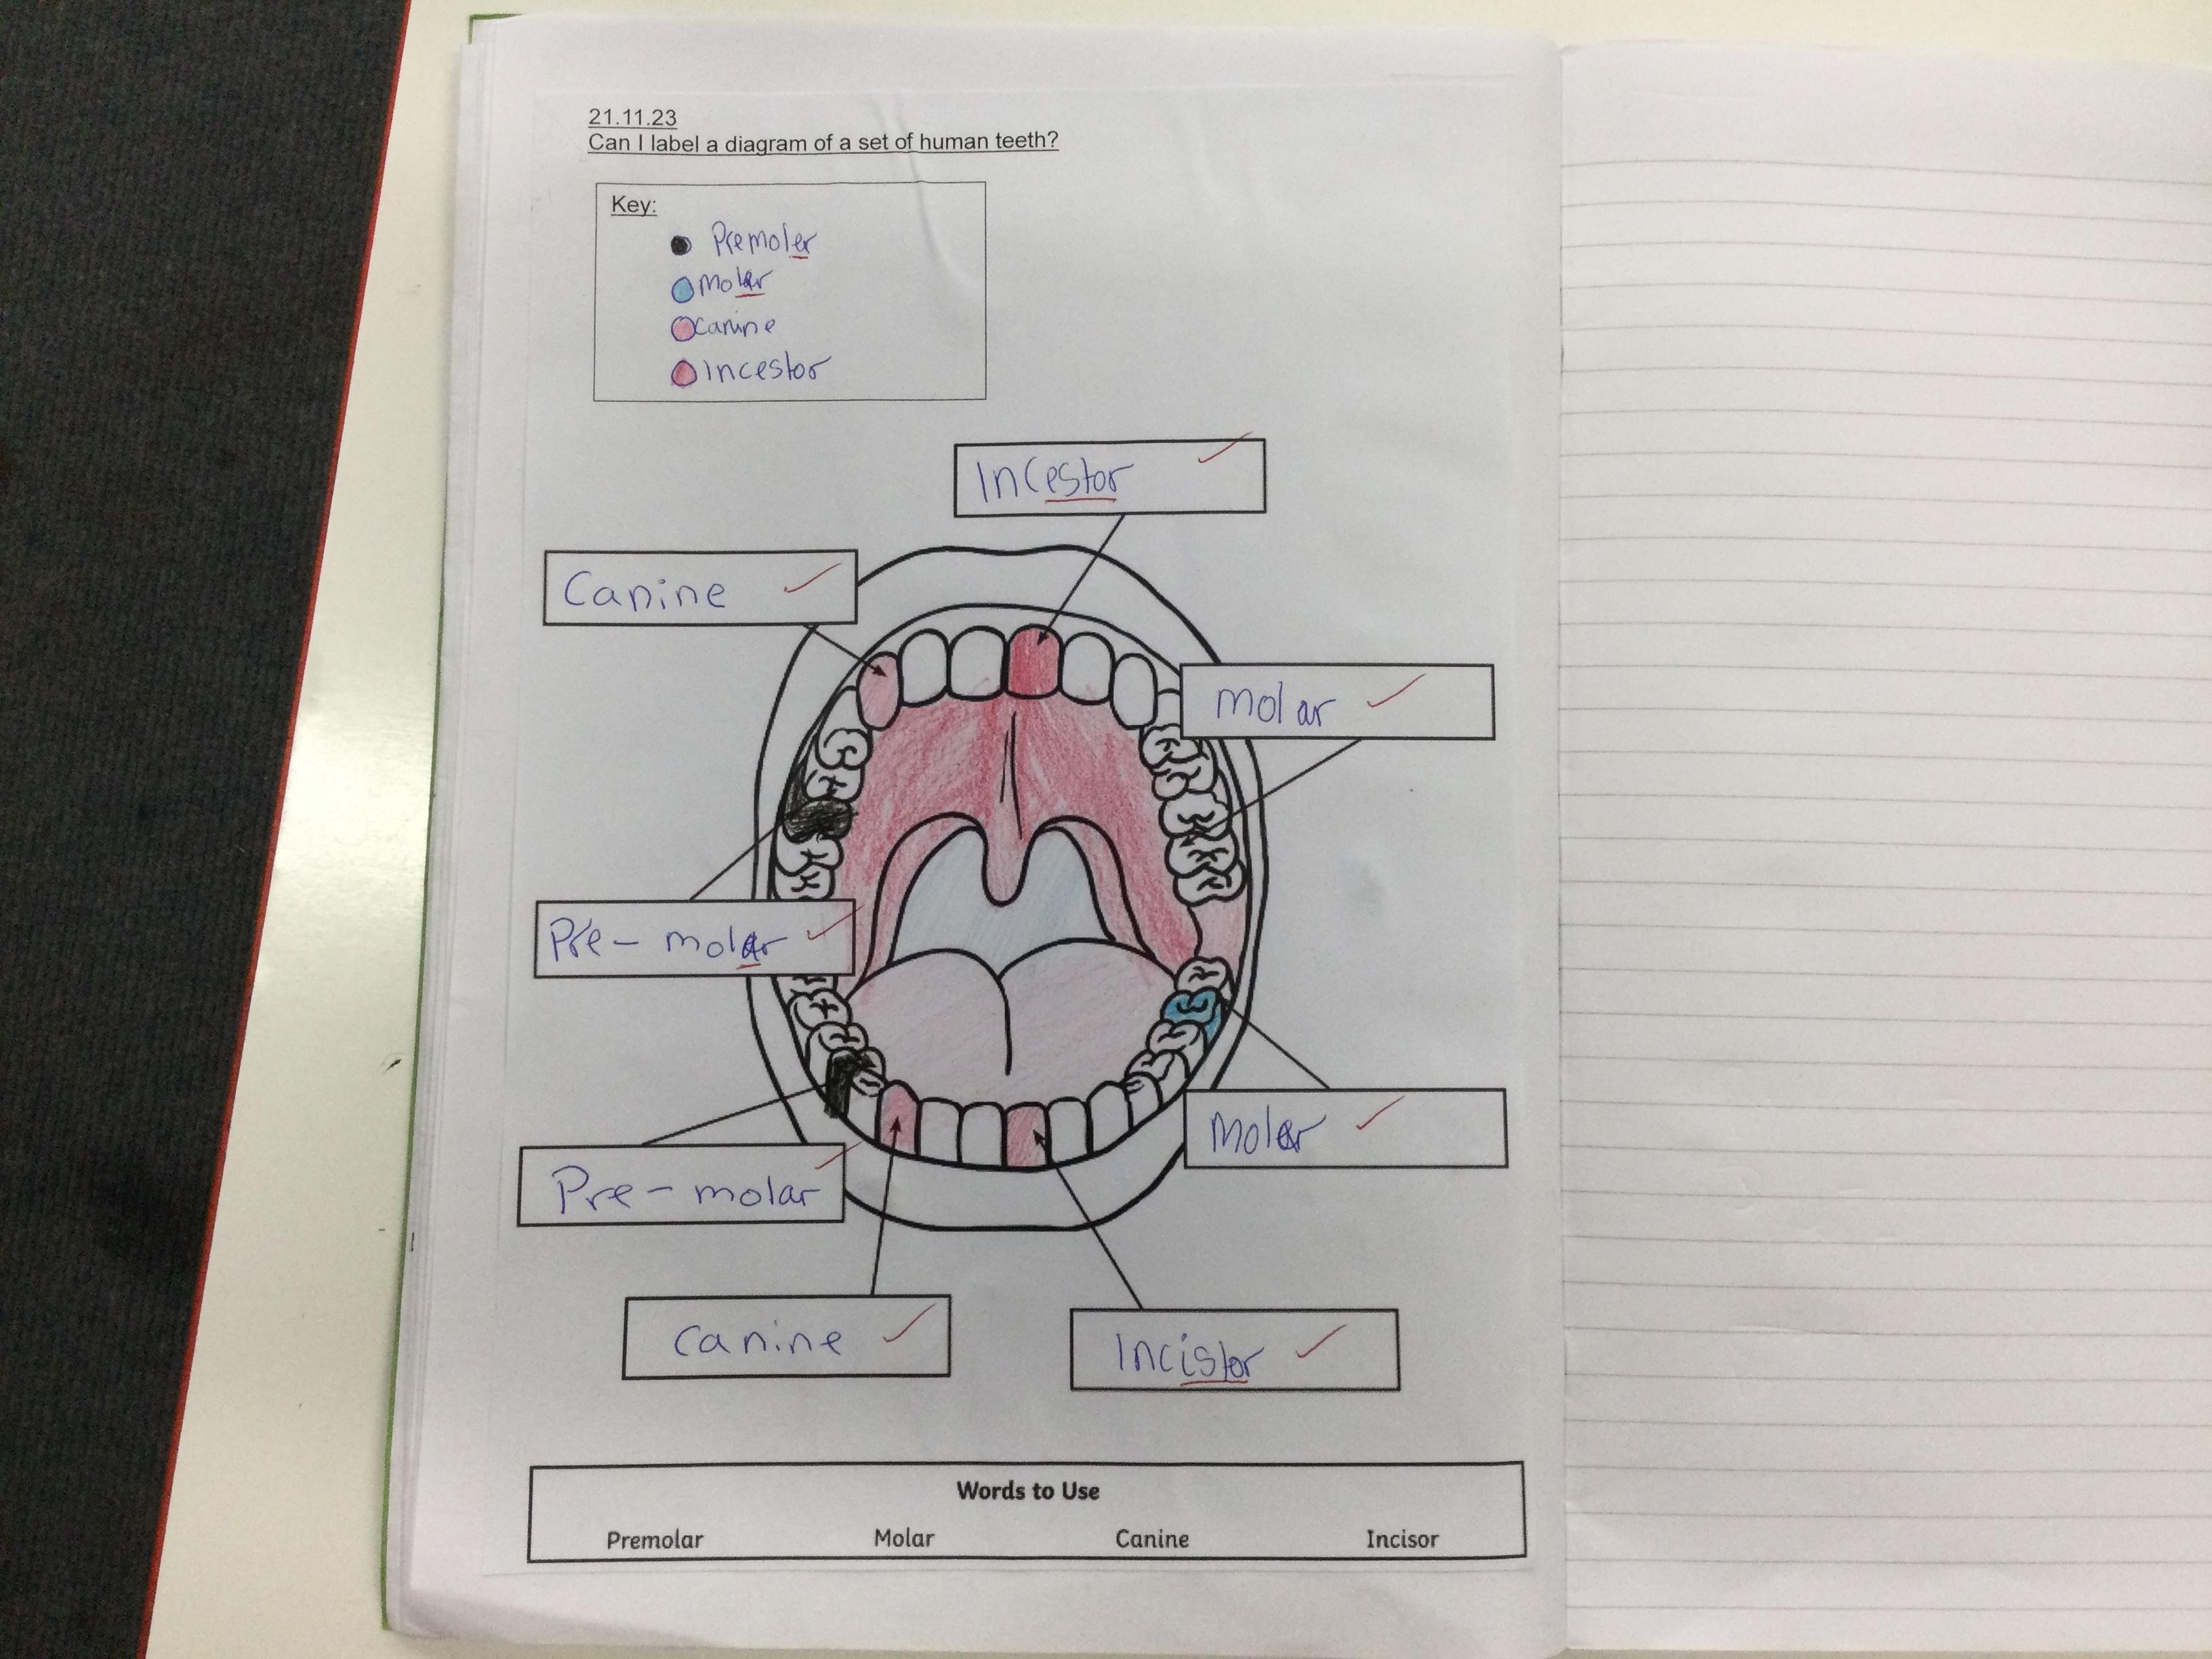 21.11.23
Can I label a diagram of a set of human teeth?
Key:
Premoler
molar
canine
incestor
Incestor
Canine
molar
Pre-molar
Molar
Pre-molar
canine
Incistor
Words to Use
Premolar Molar Canine Incisor